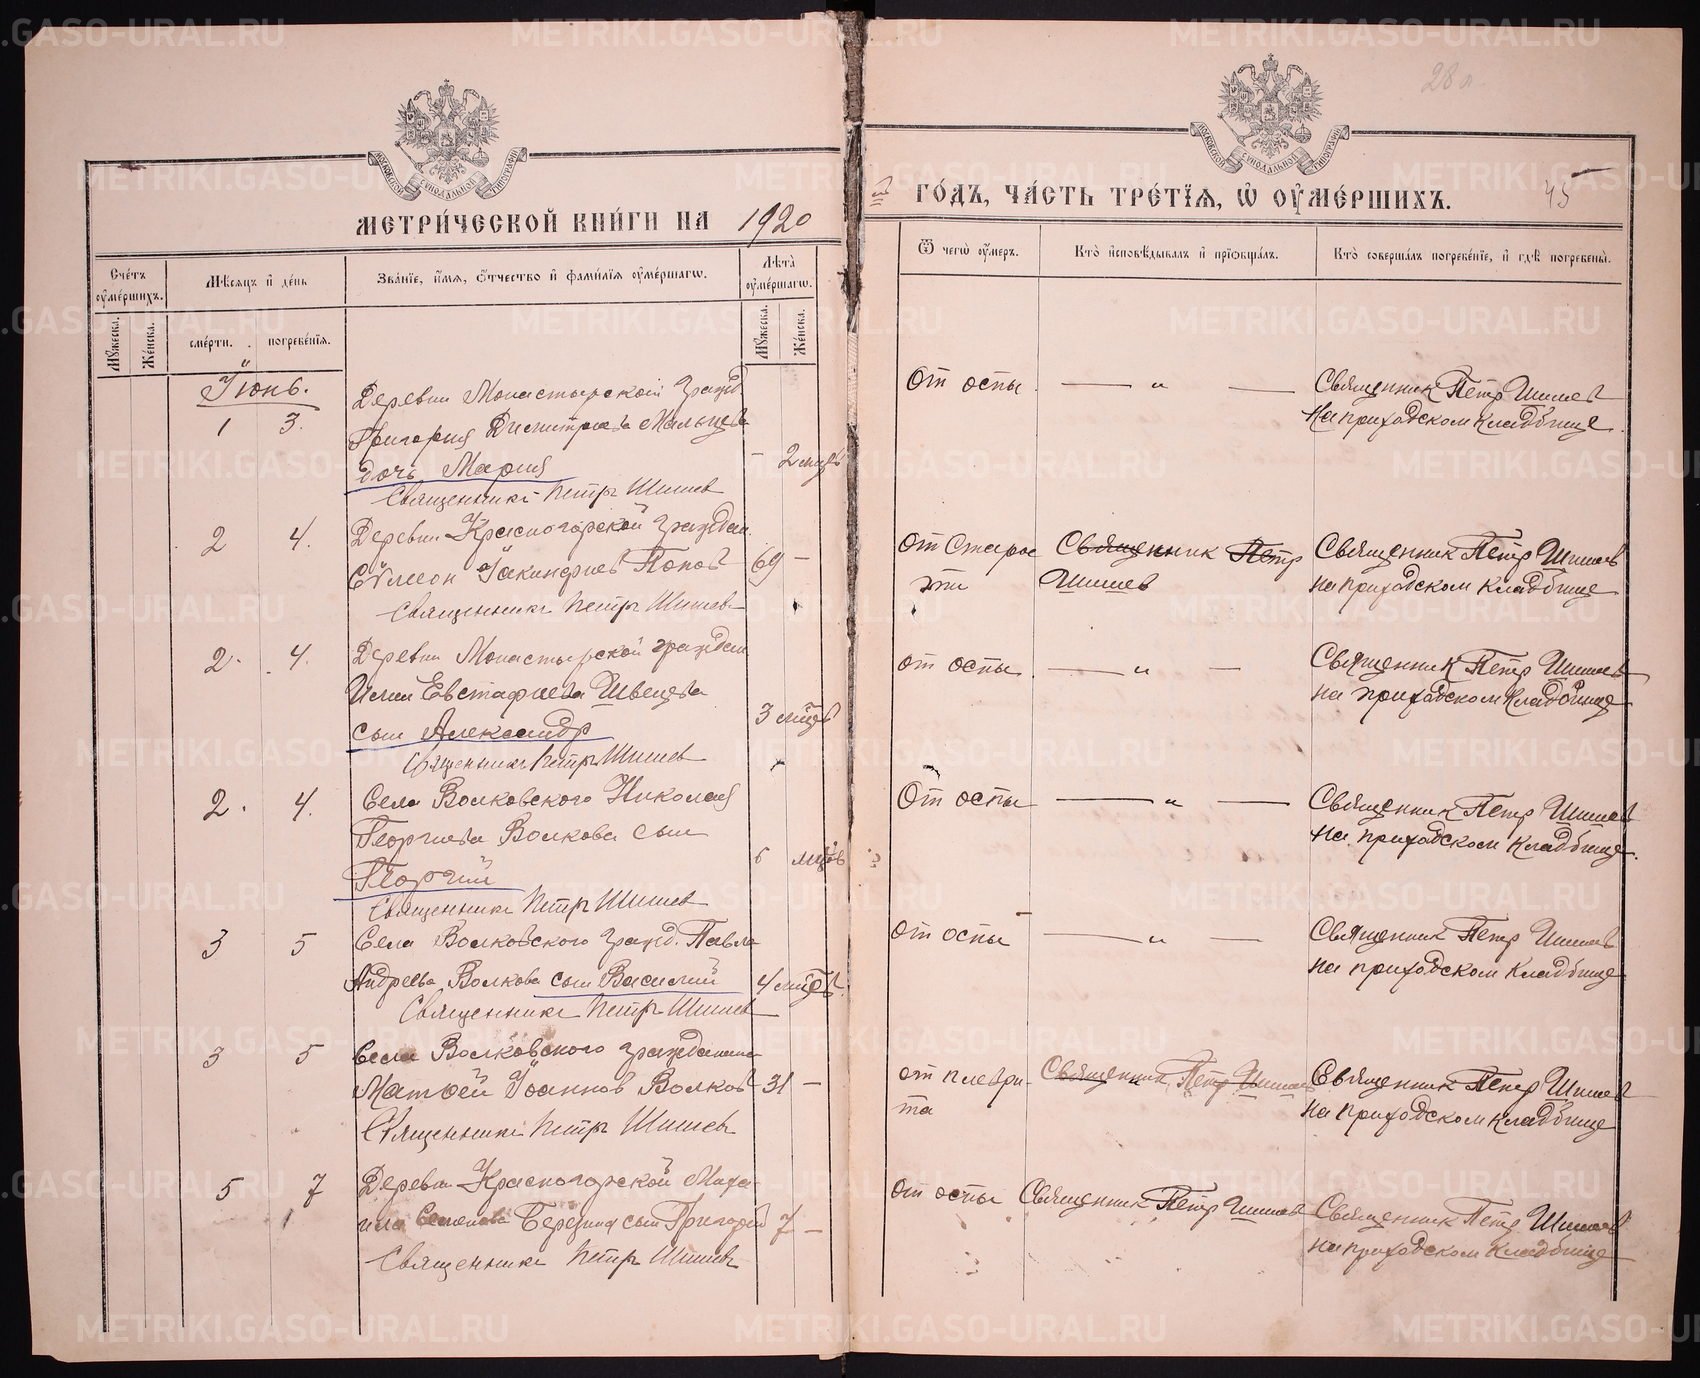 28 л
МОСКОВСКОЙ СѴНОДАЛЬНОЙ ТИПОГРАФІИ
МОСКОВСКОЙ СѴНОДАЛЬНОЙ ТИПОГРАФІИ
МЕТРИ́ЧЕСКОЙ КНИ́ГИ НА 1920
ГО́ДЪ, ЧА́СТЬ ТРЕ́ТЇѦ, Ѡ҆ ОУ҆МЕ́РШИХЪ. 45
Сче́тъ оу҆ме́ршихъ.
Мѣ́сѧцъ и҆ де́нь
Зва́нїе, и҆́мѧ, ѻ҆́тчество и҆ фами́лїѧ оу҆ме́ршагѡ.
Лѣ́та оу҆ме́ршагѡ.
Ѿ чегѡ̀ оу҆́меръ.
Кто̀ и҆сповѣ́дывалъ и҆ прїѡбща́лъ.
Кто̀ соверша́лъ погребе́нїе, и҆ гдѣ̀ погребены̀.
Мꙋ́жеска.
Же́нска.
сме́рти.
погребе́нїѧ.
Мꙋ́жеска.
Же́нска.
Іюнь.
1 3. Деревни Монастырской гражд.
Григория Димитриева Мальцева
дочь Мария - 2 мцъ
Священникъ Петръ Шишев
От оспы — „ — Священник Петр Шишев
На приходском кладбище.
2 4. Деревни Красногорской граждан.
Сѵмеон Іакинфиев Попов 69 —
Священникъ Петръ Шишевъ
От старос
ти
Священник Петр
Шишев
Священник Петр Шишев
на приходском кладбище
2. 4. Деревни Монастырской граждан
Илии Евстафиева Швецева
сын Александр 3 мцев
Священникъ Петръ Шишев
от оспы — „ — Священник Петр Шишев
на приходском кладбище
2. 4. Села Волковского Николая
Георгиева Волкова сын
Георгий 6 мцев
Священникъ Петръ Шишев
От оспы — „ — Священник Петр Шишев
на приходском кладбище.
3 5 Села Волковского гражд. Павла
Андреева Волкова сын Василий 4 мцев.
Священникъ Петръ Шишев
От оспы — „ — Священник Петр Шишев
на приходском кладбище
3 5 Села Волковского гражданин
Матвей Іоаннов Волков 31 —
Священникъ Петръ Шишев
от плеври-
та
Священник Петр Шишев
Священник Петр Шишев
на приходском кладбище
5 7 Деревни Красногорской Миха-
ила Семенова Березина сын Григорий 7 —
Священникъ Петръ Шишевъ
От оспы Священник Петр Шишев Священник Петр Шишев
на приходском кладбище
METRIKI.GASO-URAL.RU